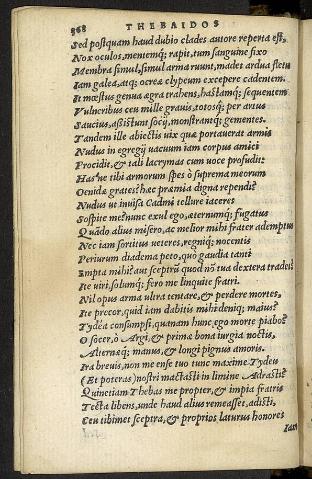 368 THEBAIDOS
Sed postquam haud dubio clades autore reperta est,
Nox oculos, mentemq; rapit, tum sanguine fixo
Membra simul, simul arma ruunt, madet ardua fletu
Iam galea, atq; ocreae clypeum excepere cadentem.
It mœstus genua aegra trahens, hastamq; sequentem
Vulneribus ceu mille grauis, totosq; per artus
Saucius, assistunt socij, monstrantq; gementes.
Tandem ille abiectis uix quae portauerat armis
Nudus in egregij uacuam iam corpus amici
Procidit, & tali lacrymas cum uoce profudit:
Hasne tibi armorum spes ò suprema meorum
Oenidae grates? haec praemia digna rependi?
Nudus ut inuisa Cadmi tellure iaceres
Sospite me? nunc exul ego, aeternumq; fugatus
Quãdo alius misero, ac melior mihi frater ademptus
Nec iam sortitus ueteres, regniq; nocentis
Periurum diadema peto, quò gaudia tanti
Empta mihi? aut sceptrũ quod nõ tua dextera tradet?
Ite uiri, solumq; fero me linquite fratri.
Nil opus arma ultra tentare, & perdere mortes,
Ite precor, quid iam dabitis mihi deniq; maius?
Tydea consumpsi, quanam hunc ego morte piabo?
O socer, ò Argi, & primae bona iurgia noctis,
Alternaeq; manus, & longi pignus amoris.
Ira breuis, non me ense tuo tunc maxime Tydeu
(Et poteras) nostri mactasti in limine Adrasti?
Quinetiam Thebas me propter, & impia fratris
Tecta libens, unde haud alius remeasset, adisti,
Ceu tibimet sceptra, & proprios laturus honores